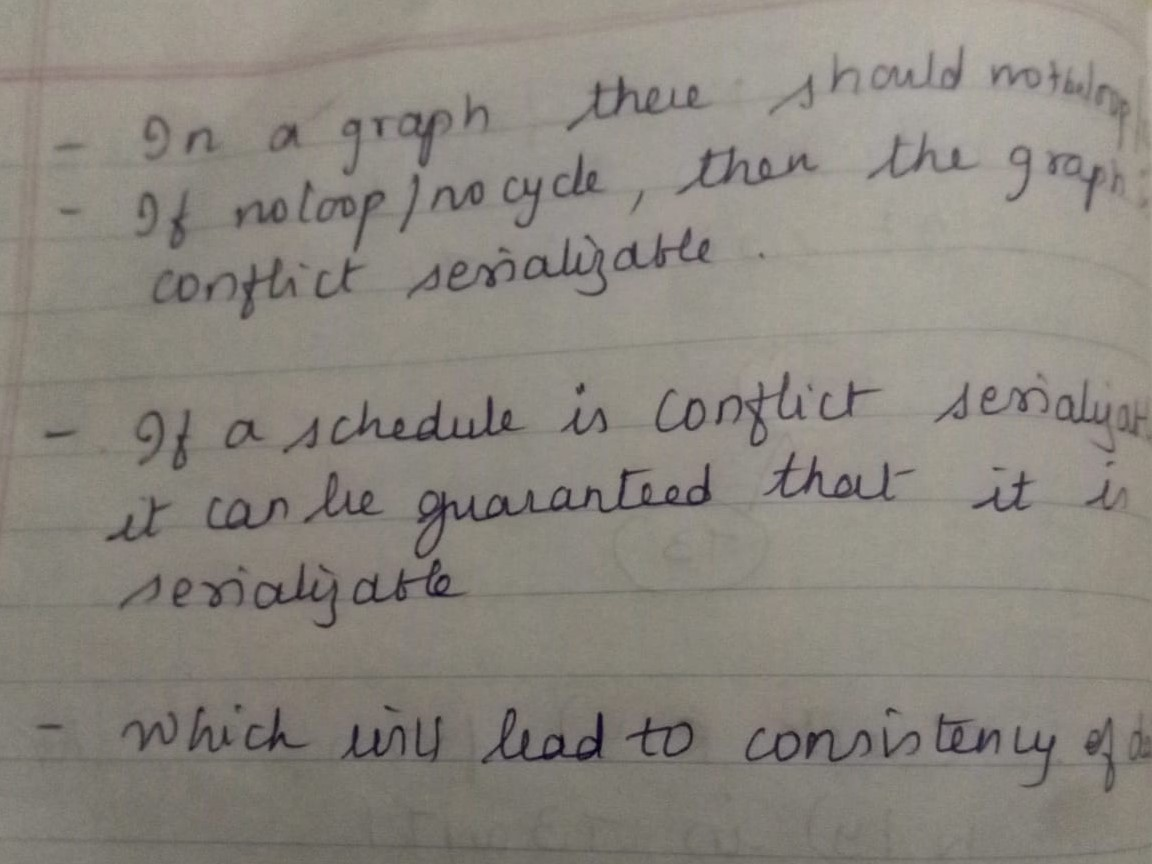 - In a graph there should not be loop
- If no loop / no cycle, then the graph
conflict serializable.
- If a schedule is conflict
it can be guaranteed that it is
serializable
- which will lead to consistency of